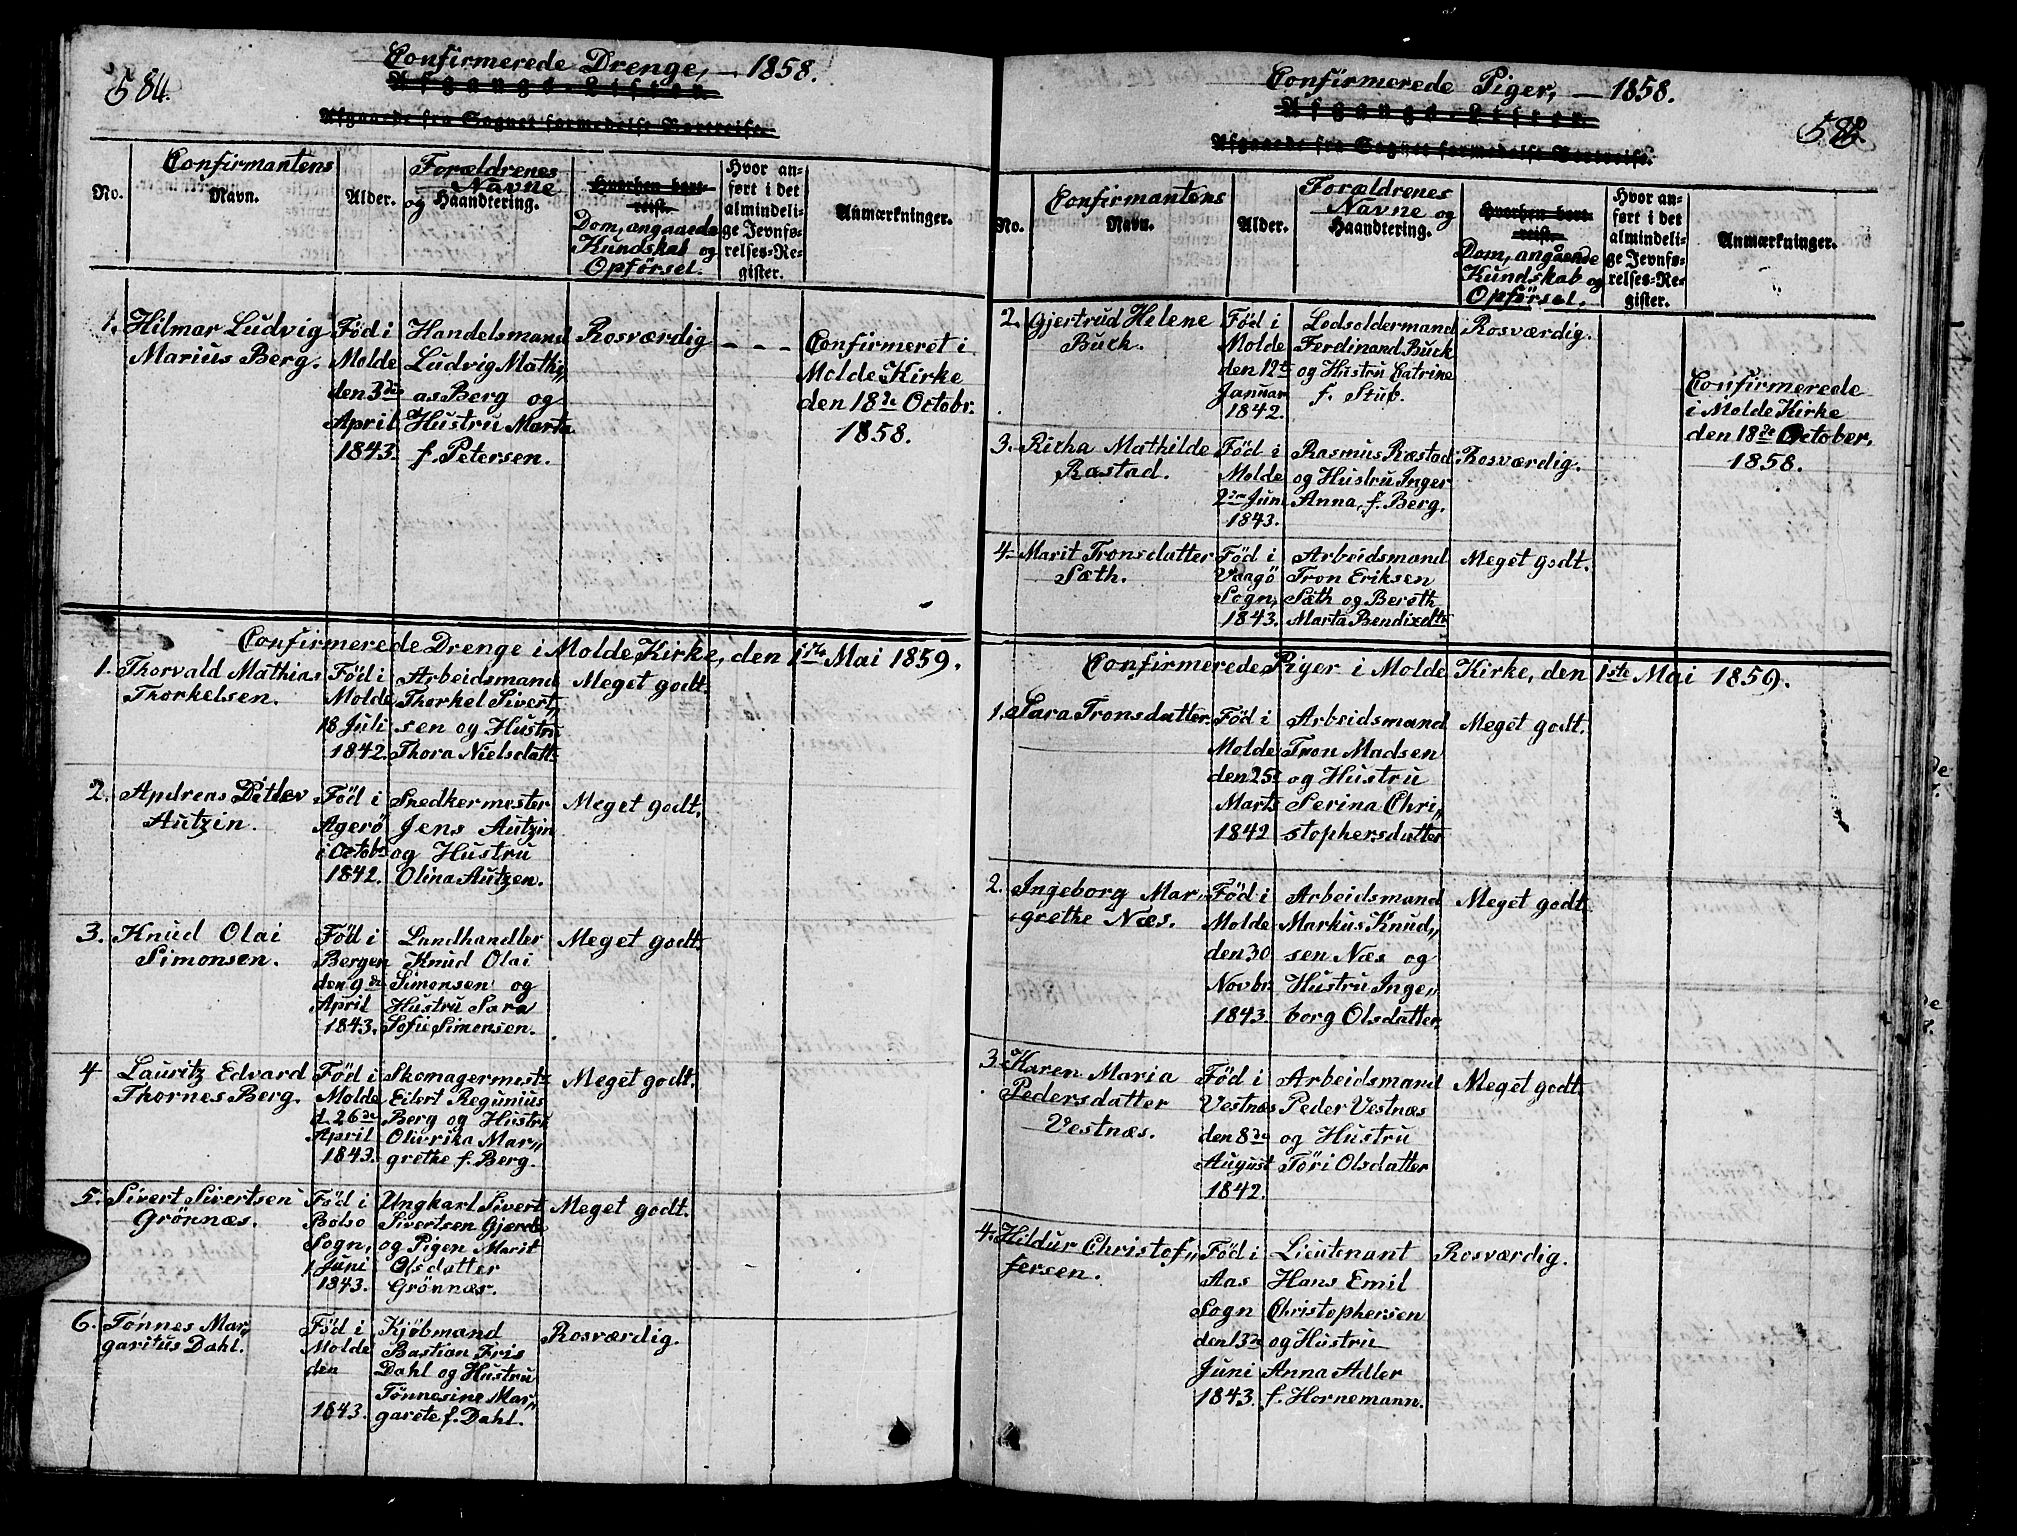 584.
Confirmerede Drenge, — 1858.
Afgangs-Listen
Afgaaede fra Sognet formedelst Bortreise.
No.
Confirmantens
Navn.
Alder.
Forældrenes
Navne
og Haandtering.
Hvorhen bort-
reist.
Dom, angaaende
Kundskab og
Opførsel.
Hvor an-
ført i det
almindeli-
ge Jevnfø-
relses-Re-
gister.
Anmærkninger.
1. Hilmar Ludvig
Marius Berg.
Född i
Molde
den 3de
April
1843.
Handelsmand
Ludvig Mathi„
as Berg og
Hustru Marta
f. Petersen.
Rosværdig
- - -
Confirmeret i
Molde Kirke
den 18de Octobr.
1858.
Confirmerede Drenge i Molde Kirke, den 1ste Mai 1859.
1. Thorvald Mathias
Thorkelsen.
Föd i
Molde
18 Juli
1842.
Arbeidsmand
Thorkel Sivert„
sen og Hustru
Thora Nielsdatt.
Meget godt.
2. Andreas Ditlev
Autzin.
Föd i
Agerö
i Octobr
1842.
Snedkermester
Jens Autzin
og Hustru
Olina Autzen.
Meget godt.
3. Knud Olai
Simonsen.
Föd i
Bergen
den 9de
April
1843.
Landhandler
Knud Olai
Simonsen og
Hustru Sara
Sofie Simonsen.
Meget godt.
4 Lauritz Edvard
Thornes Berg.
Föd i
Molde
d. 26de
April
1843.
Skomagermest.
Eilert Regunius
Berg og Hustru
Oliverika Mar„
grethe f. Berg.
Meget godt.
5. Sivert Sivertsen
Grönnæs.
Föd i
Bolsö
Sogn,
1 Juni
1843.
Ungkarl Sivert
Sivertsen Gjerde
og Pigen Marit
Olsdatter
Grönnæs.
Meget godt.
6. Tønnes Mar„
garitus Dahl.
Föd i
Molde
den
1843.
Kjöbmand
Bastian Fris
Dahl og Hustru
Tønnesine Mar„
garete f. Dahl.
Rosværdig.
Confirmerede Piger, — 1858.
585.
Afgangs-Listen
Afgaaede fra Sognet formedelst Bortreise.
No.
Confirmantens
Navn.
Alder.
Forældrenes
Navne og
Haandtering.
Hvorhen bort-
reist.
Dom, angående
Kundskab og
Opførsel.
Hvor an-
ført i det
almindeli-
ge Jevnfø-
relses-Re-
gister.
Anmærkninger.
2. Gjertrud Helene
Buck.
Föd i
Molde
den 12te
Januar
1842.
Lodsoldermand
Ferdinand Buck
og Hustru Catrine
f. Stub.
Rosværdig.
Confirmerede
i Molde Kirke
den 18de October,
1858.
3. Rikka Mathilde
Røstad.
Föd i
Molde
2den Juni
1843.
Rasmus Røstad
og Hustru Inger
Anna, f. Berg.
Rosværdig.
4. Marit Tronsdatter
Sæth.
Föd i
Vaagö
Sogn,
1843.
Arbeidsmand
Tron Eriksen
Sæth og Bereth
Marta Bendixdtr
Meget godt.
Confirmerede Piger i Molde Kirke, den 1ste Mai 1859.
1. Sara Tronsdatter.
Föd i
Molde
den 25de
Marts
1842
Arbeidsmand
Tron Madsen
og Hustru
Serina Chri„
stophersdatter
Meget godt.
2. Ingeborg Mar„
grethe Næs.
Föd i
Molde
den 30
Novbr.
1843.
Arbeidsmand
Markus Knud„
sen Næs og
Hustru Inge„
borg Olsdatter
Meget godt
3. Karen Maria
Pedersdatter
Vestnæs.
Föd i
Vestnæs
den 8de
August
1842.
Arbeidsmand
Peder Vestnæs
og Hustru
Töri Olsdatter
Meget godt.
4. Hildur Christof„
fersen.
Föd i
Aas
Sogn
den 13de
Juni
1843.
Lieutenant
Hans Emil
Christophersen
og Hustru
Anna Adler
f. Hornemann.
Rosværdig.